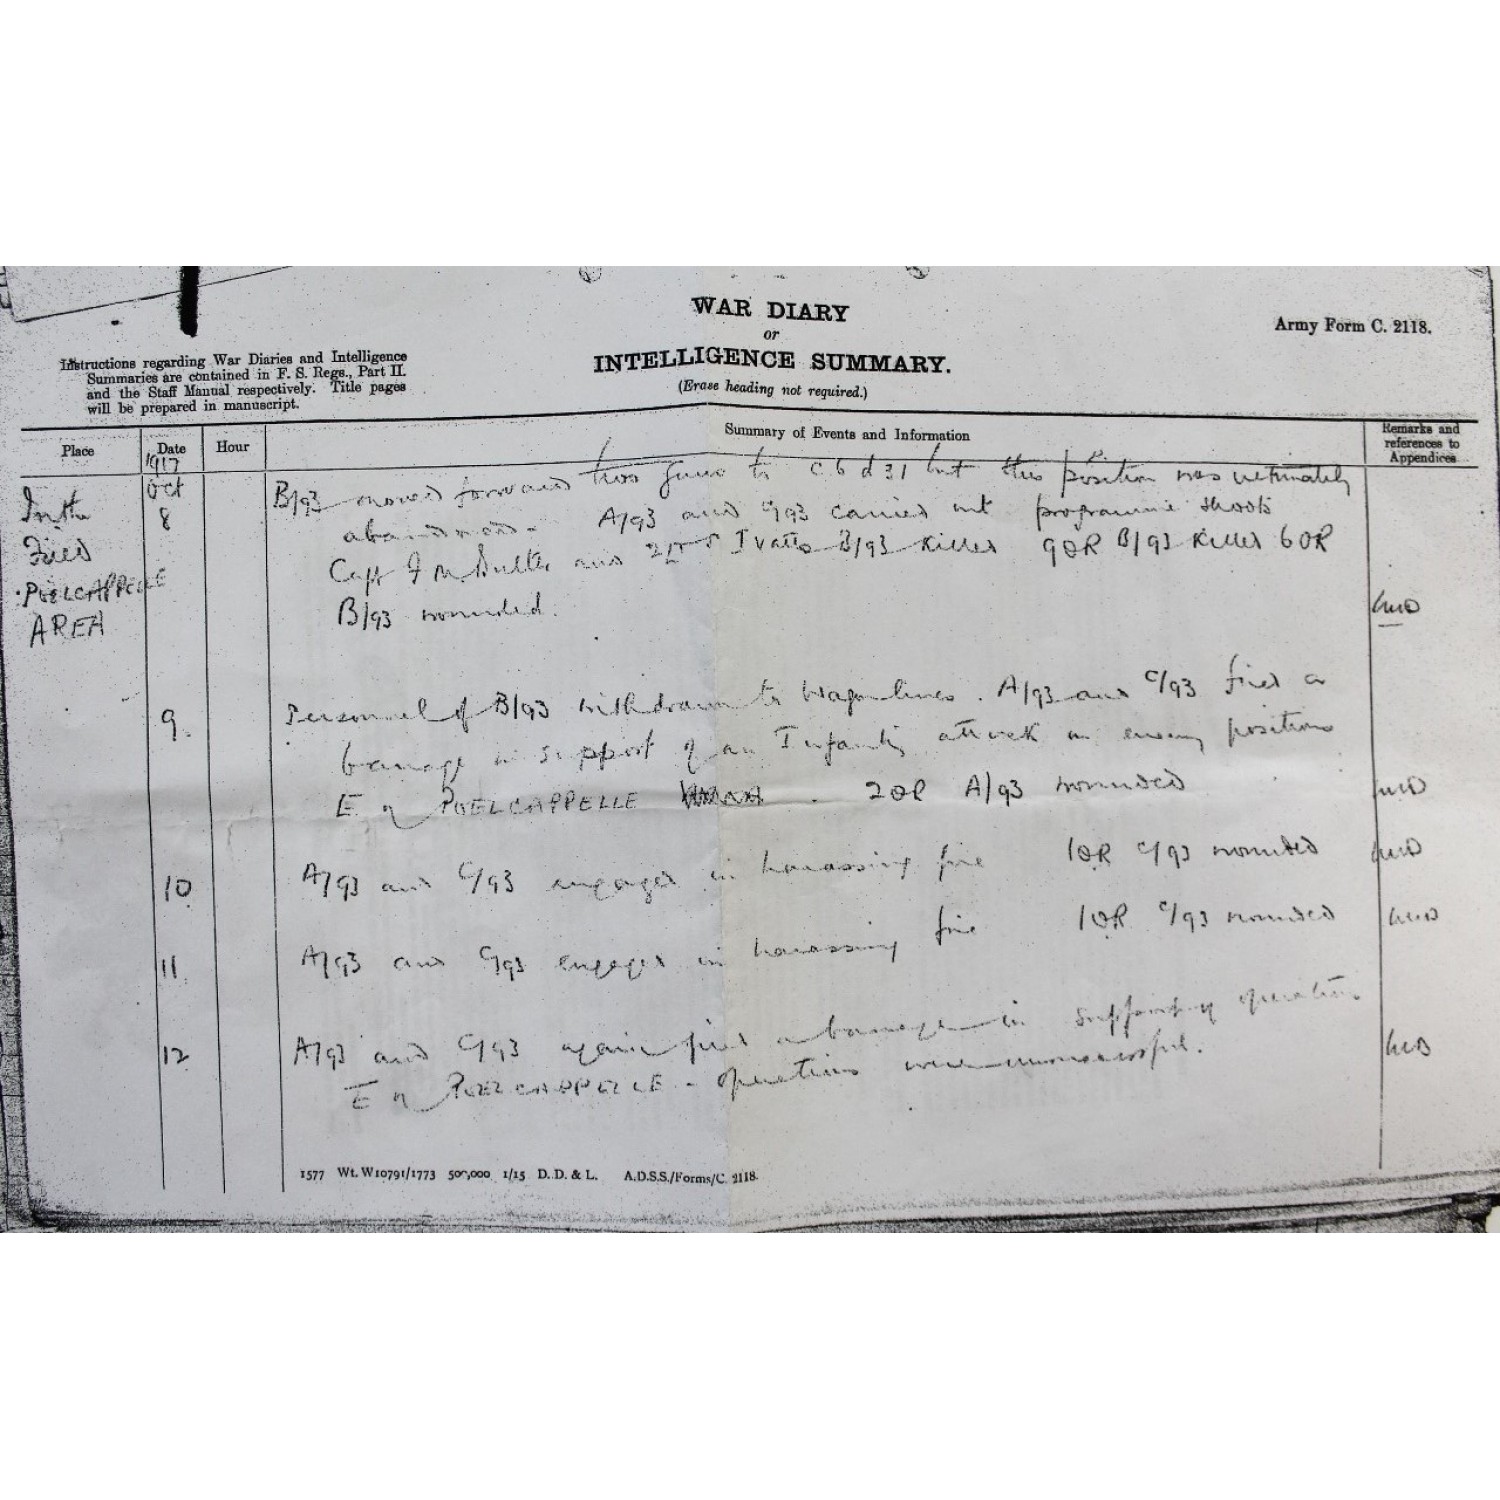 WAR DIARY
or
INTELLIGENCE SUMMARY.
(Erase heading not required.)
Army Form C. 2118.
Instructions regarding War Diaries and Intelligence
Summaries are contained in F. S. Regs., Part II.
and the Staff Manual respectively. Title pages
will be prepared in manuscript.
Place Date Hour Summary of Events and Information Remarks and references to Appendices
1917
In the Oct 8 B/93 moved forward two guns to C 6 d 31 but this position was ultimately
Field abandoned - A/93 and C/93 carried out programme shoots
POELCAPPELLE Capt F M and 2Lt B/93 Killed 9 OR B/93 Killed 6 OR
AREA B/93 wounded.
9. Personnel of B/93 withdrawn to Wagon lines. A/93 and C/93 fired a
barrage in support of an Infantry attack on enemy positions
E of POELCAPPELLE . 2 OR A/93 wounded
10 A/93 and C/93 engaged in harassing fire 1 OR C/93 wounded
11. A/93 and C/93 engaged in harassing fire 1 OR C/93 wounded
12 A/93 and C/93 again fired a barrage in support of operations
E of POELCAPPELLE - operations were unsuccessful.
1577 Wt. W10791/1773 500,000 1/15 D. D. & L. A.D.S.S./Forms/C. 2118.